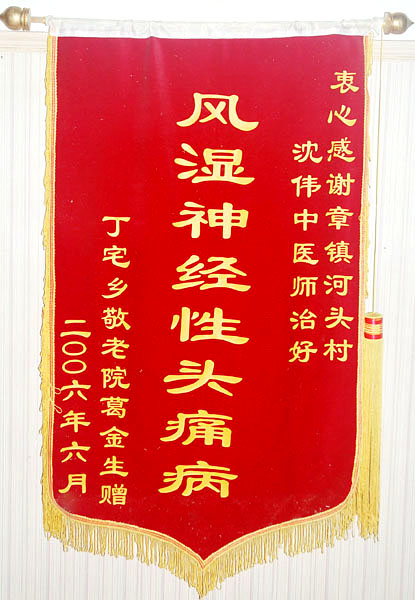 衷心感谢章镇河头村
沈伟中医师治好
风湿神经性头痛病
丁宅乡敬老院葛金生赠
二00六年六月